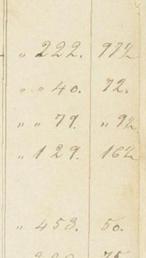 " 222. 97½
" " 40. 72.
" " 79. " 9½
" 129. 16½
" 453. 50.